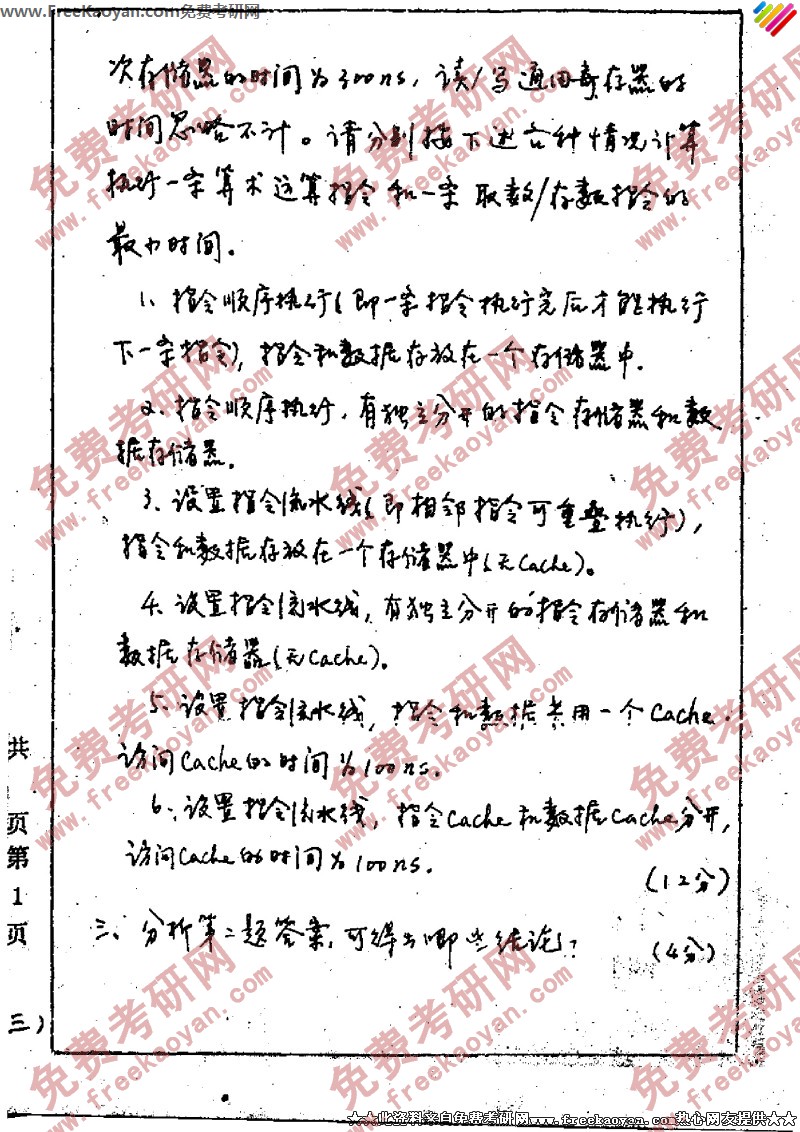 www.FreeKaoyan.com免费考研网
次存储器的时间为300ns,读/写通用寄存器的
时间忽略不计。请分别按下述六种情况计算
执行一条算术运算指令和一条取数/存数指令的
最少时间。
1、指令顺序执行(即一条指令执行完后才能执行
下一条指令),指令和数据存放在一个存储器中.
2、指令顺序执行,有独立分开的指令存储器和数
据存储器.
3、设置指令流水线(即相邻指令可重叠执行),
指令和数据存放在一个存储器中(无Cache)。
4、设置指令流水线,有独立分开的指令存储器和
数据存储器(无Cache)。
5、设置指令流水线,指令和数据共用一个Cache.
访问Cache的时间为100ns.
6、设置指令流水线,指令Cache和数据Cache分开,
访问Cache的时间为100ns.
(12分)
三、分析第二题答案,可得出哪些结论?
(4分)
共
页
第
1
页
三)
免费考研网
www.freekaoyan.com
★★此资料来自免费考研网www.freekaoyan.com热心网友提供★★